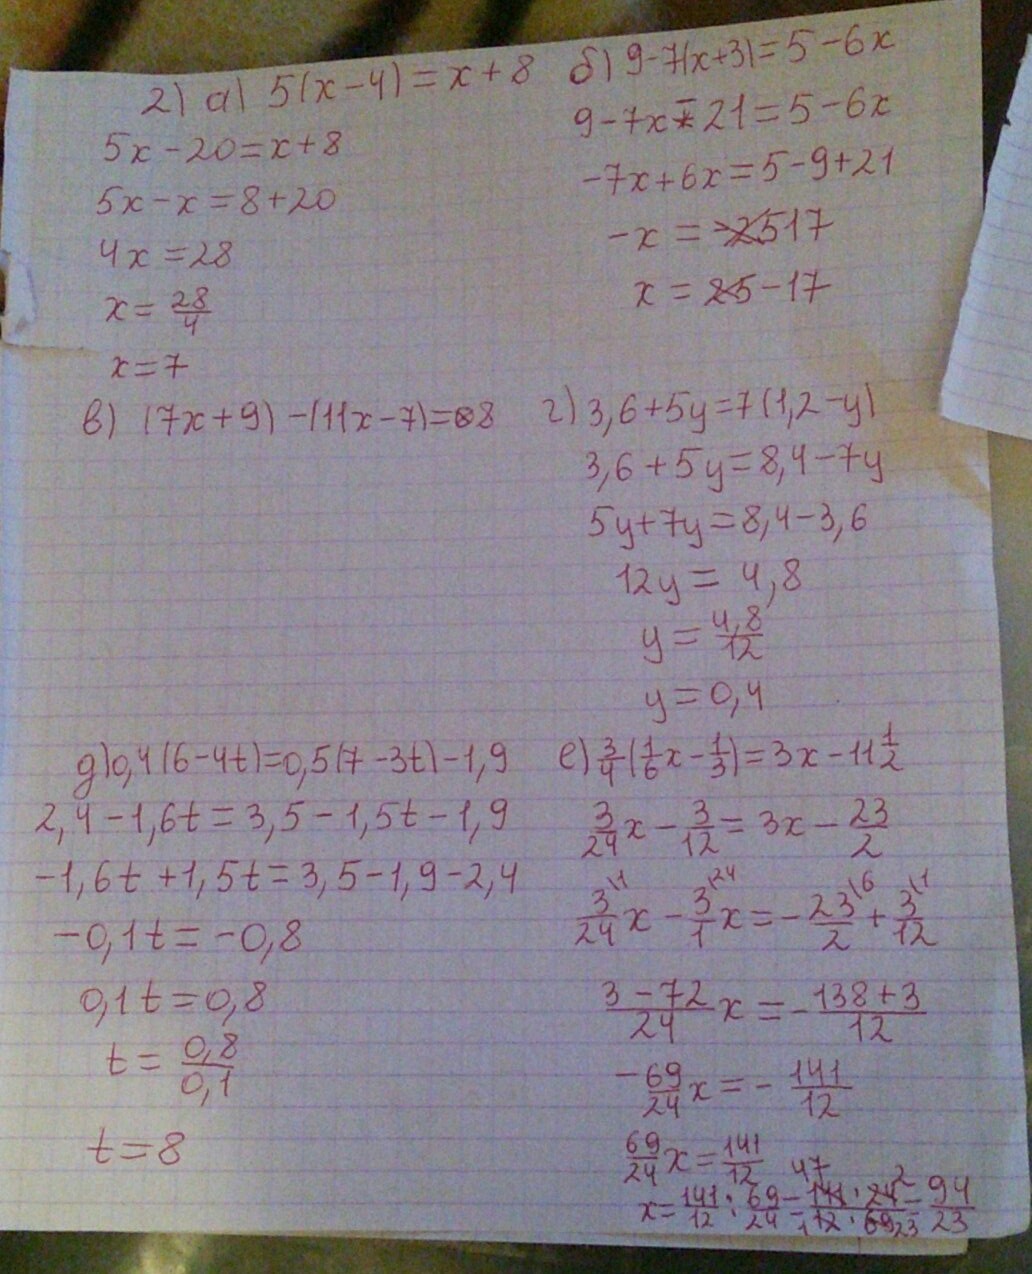 2) а) 5(x-4)=x+8
5x-20=x+8
5x-x=8+20
4x=28
x=28/4
x=7
б) 9-7(x+3)=5-6x
9-7x-21=5-6x
-7x+6x=5-9+21
-x=17
x=-17
в) (7x+9)-(11x-7)=8
г) 3,6+5y=7(1,2-y)
3,6+5y=8,4-7y
5y+7y=8,4-3,6
12y=4,8
y=4,8/12
y=0,4
д) 0,4(6-4t)=0,5(7-3t)-1,9
2,4-1,6t=3,5-1,5t-1,9
-1,6t+1,5t=3,5-1,9-2,4
-0,1t=-0,8
0,1t=0,8
t=0,8/0,1
t=8
е) 3/4(1/6x-1/3)=3x-11 1/2
3/24x-3/12=3x-23/2
3\1/24x-3\24/1x=-23\6/2+3\1/12
3-72/24x=-138+3/12
-69/24x=-141/12
69/24x=141/12
x=141/12:69/24=141·24/12·69=94/23